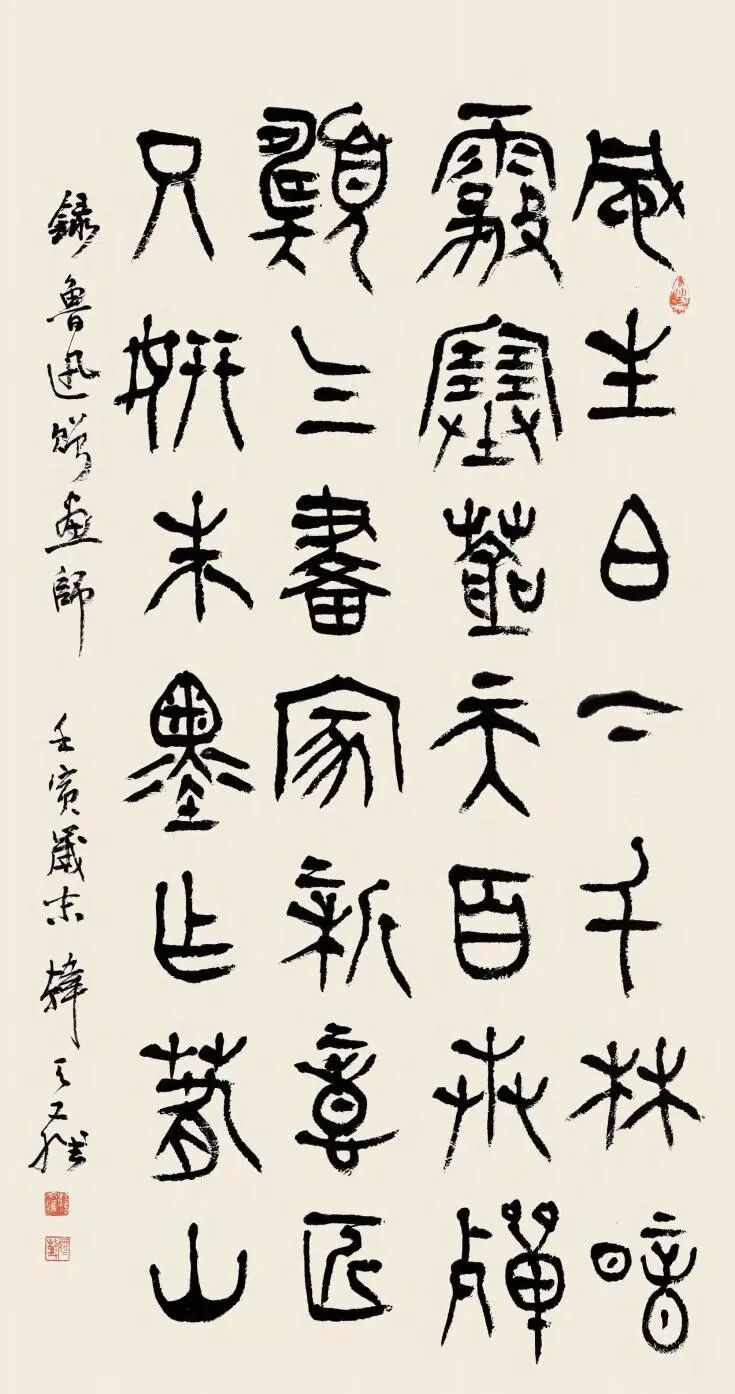 風生白下千林暗
霧塞蒼天百卉殫
願乞畫家新意匠
只研朱墨作春山
錄魯迅贈畫師 壬寅歲末 韓天雍